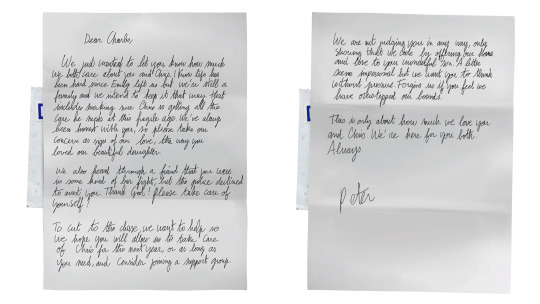 Dear Charlie,
We just wanted to let you know how much
we both care about you and Chris. I know life has
been hard since Emily left us but we're still a
family and we intend to keep it that way. That
includes making sure Chris is getting all the
care he needs at this fragile age. We've always
been honest with you, so please take our
concern as sign of our love, the way you
loved our beautiful daughter.
We also heard through a friend that you were
in some kind of bar fight, but the police declined
to arrest you. Thank God! Please take care of
yourself!
To cut to the chase, we want to help so
we hope you will allow us to take care
of Chris for the next year, or as long as
you need, and consider joining a support group.
We are not judging you in any way, only
showing that we care by offering our home
and love to you wonderful son. A letter
seems impersonal but we want you to think
without pressure. Forgive us if you feel we
have overstepped our bounds.
This is only about how much we love you
and Chris. We're here for you both.
Always
Peter